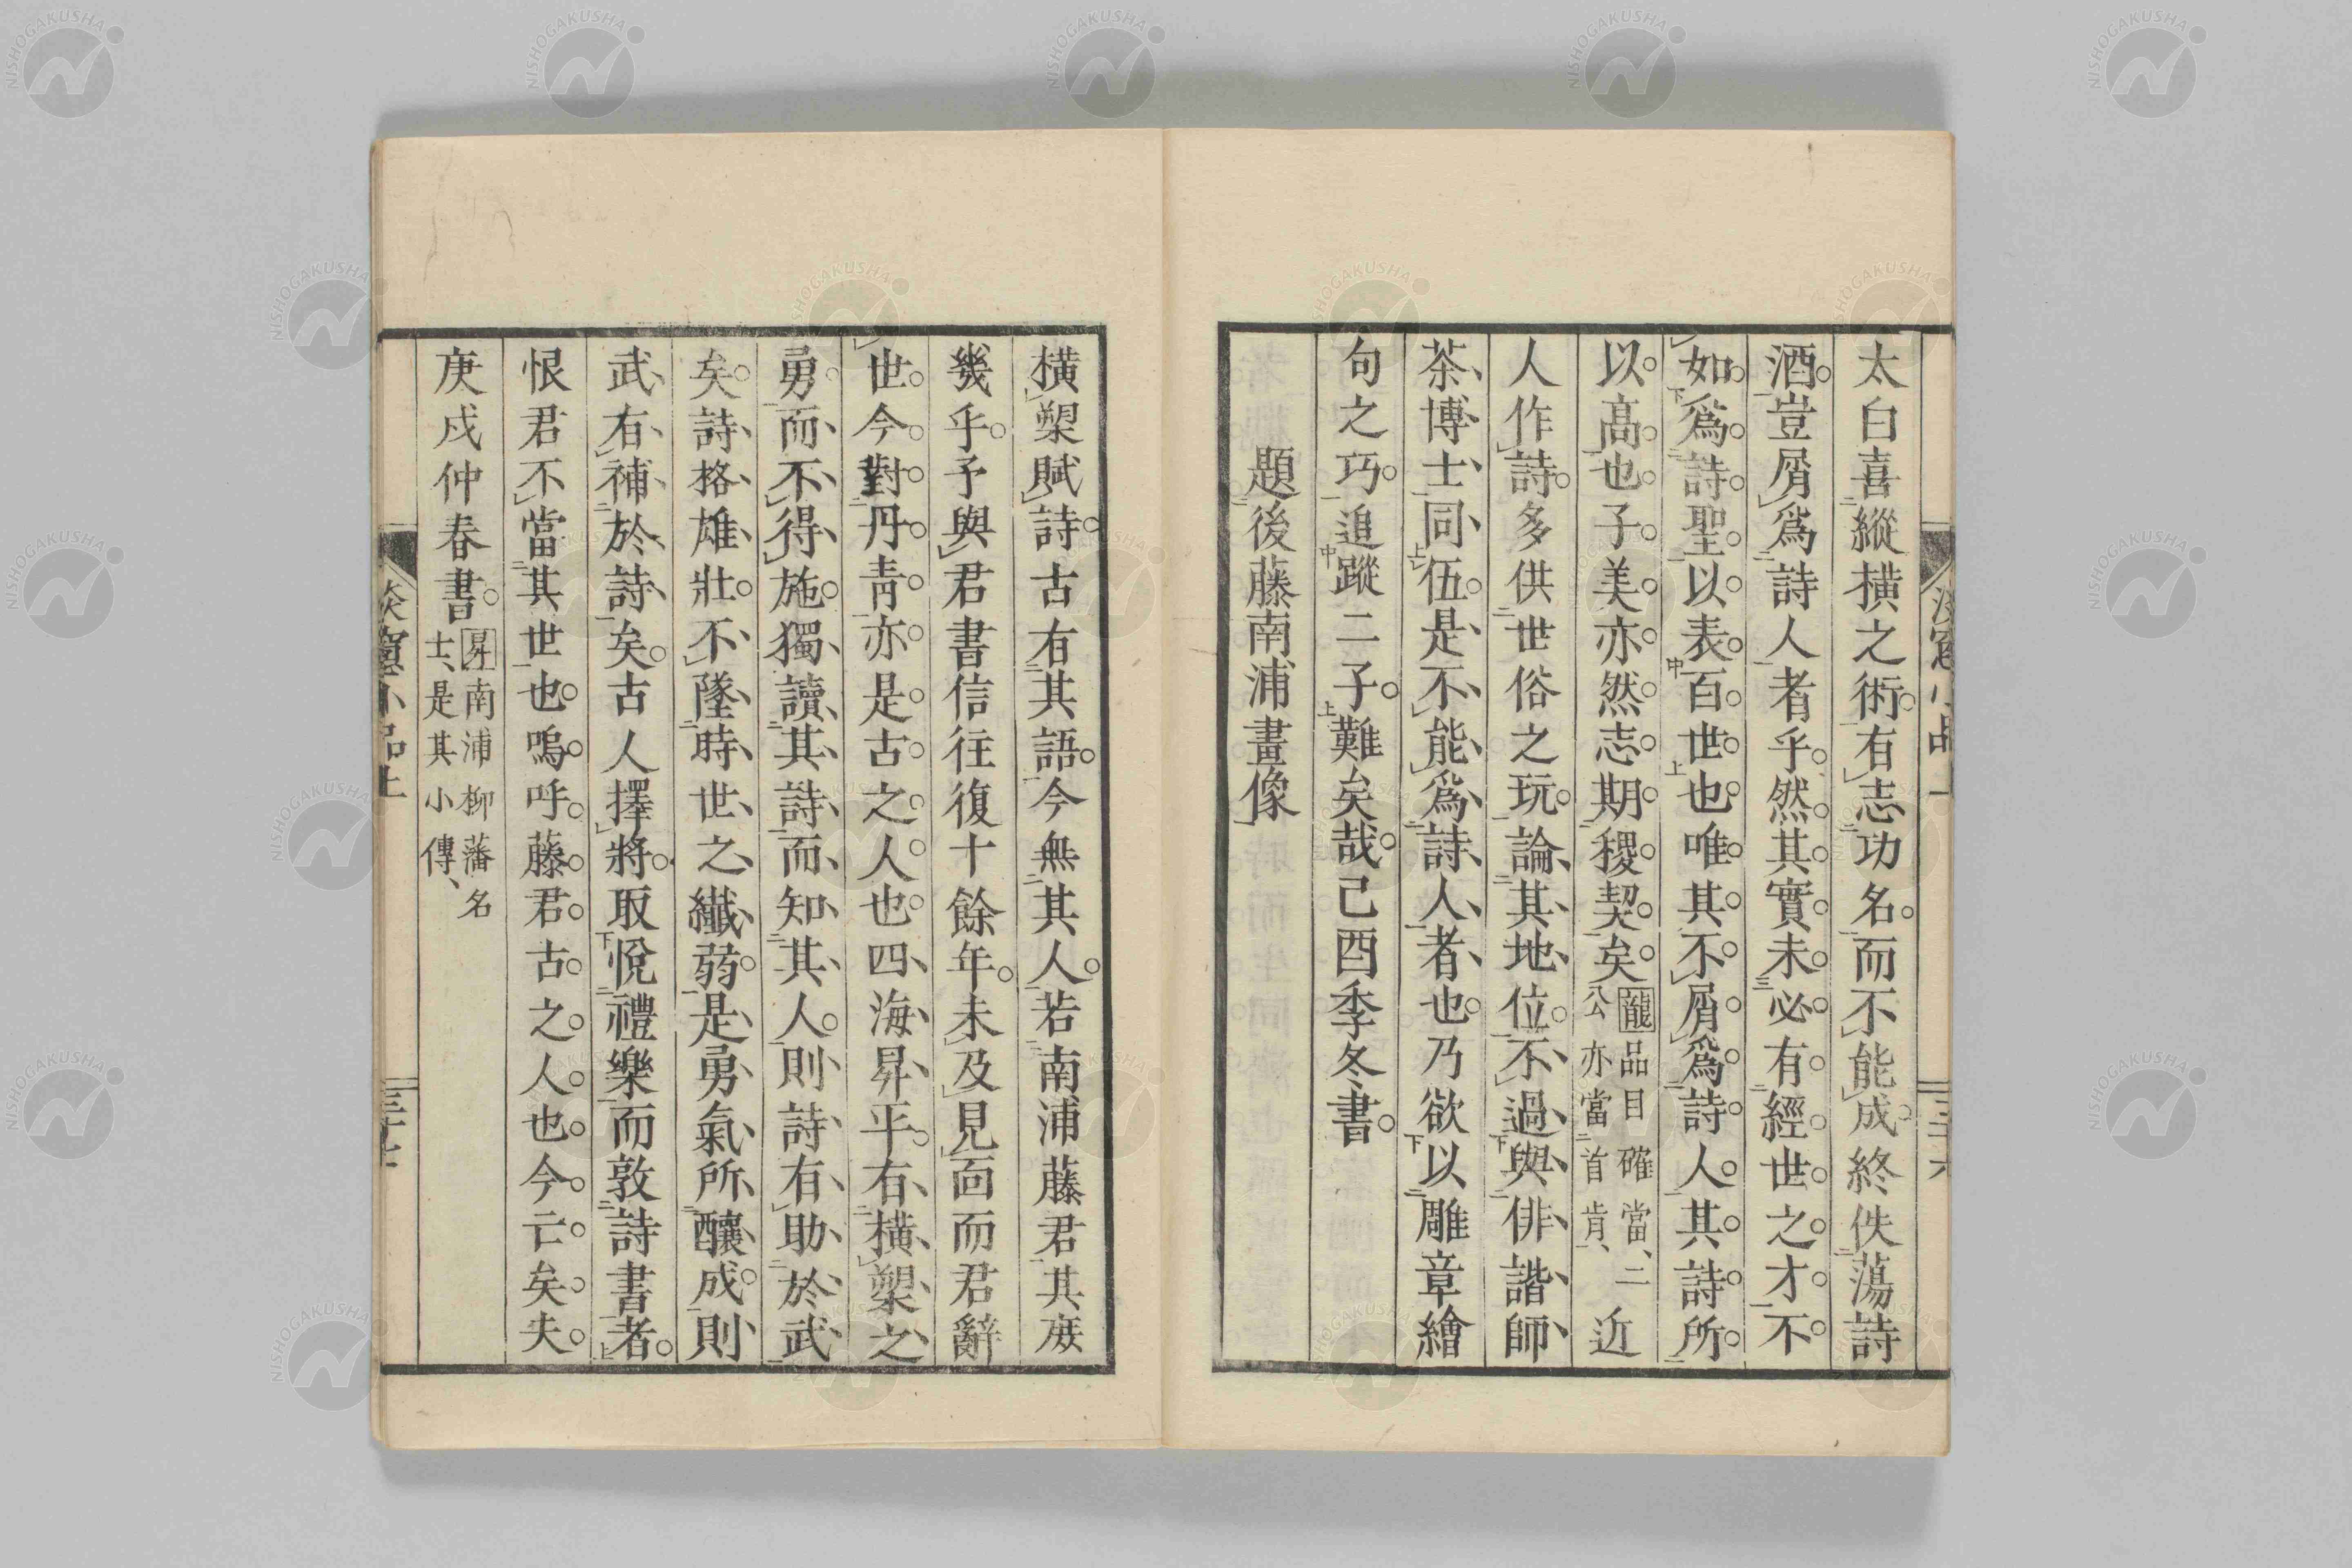 太白喜縱橫之術有志功名而不能成終佚蕩詩
酒豈屑爲詩人者乎然其實未必有經世之才不
如爲詩聖以表百世也唯其不屑爲詩人其詩所
以高也子美亦然志期稷契矣龍品目確當、二公亦當首肯、近
人作詩多供世俗之玩論其地位不過與俳諧師
茶博士同伍是不能爲詩人者也乃欲以雕章繪
句之巧追蹤二子難矣哉己酉季冬書
題後藤南浦畫像
橫槊賦詩古有其語今無其人若南浦藤君其庶
幾乎予與君書信往復十餘年未及見面而君辭
世今對丹靑亦是古之人也四海昇平右橫槊之
勇而不得施獨讀其詩而知其人則詩有助於武
矣詩格雄壯不墜時世之纖弱是勇氣所釀成則
武有補於詩矣古人擇將取悅禮樂而敦詩書者
恨君不當其世也嗚呼藤君古之人也今亡矣夫
庚戌仲春書昇南浦柳藩名士、是其小傳、
小品上
NISHOGAKUSHA